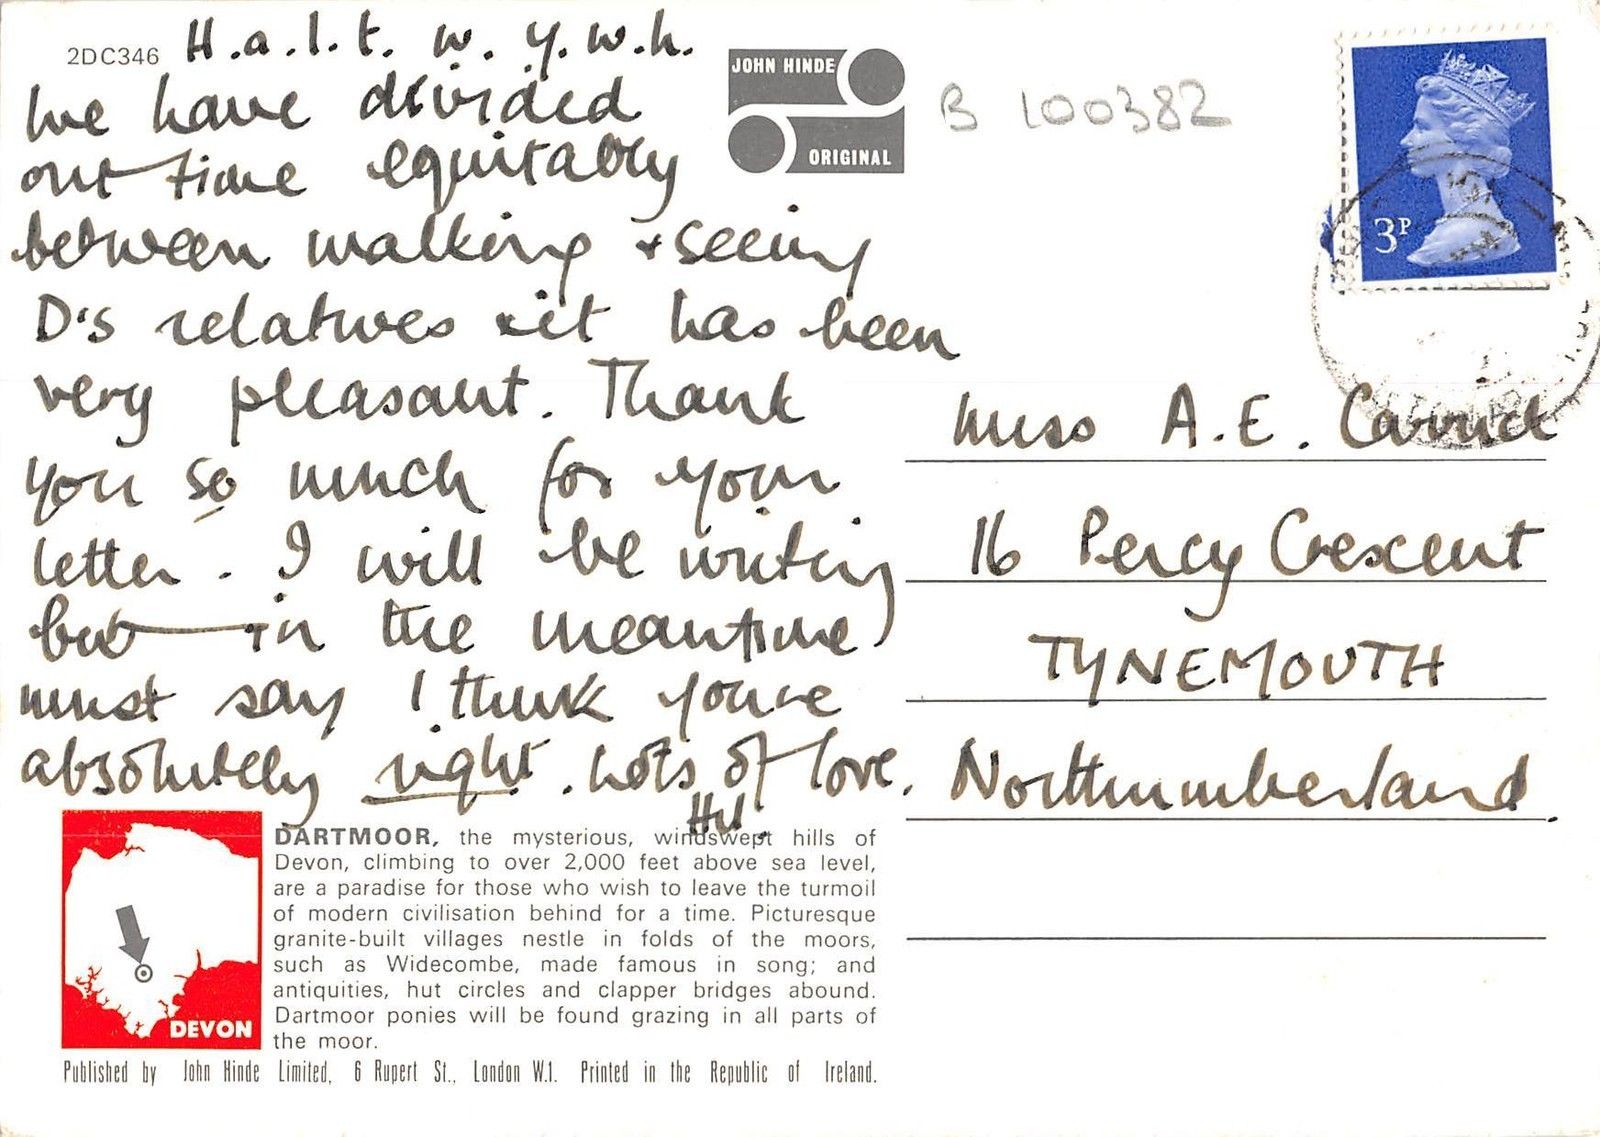 2DC346
H.a.l.t. w. y.w.h.
We have divided
our time equitably
between walking + seeing
D's relatives + it has been
very pleasant. Thank
you so much for your
letter. I will be writing
but in the meantime
must say I think you're
absolutely right. Lots of love.
JOHN HINDE
ORIGINAL
B 100382
3P
Miss A.E.
16 Percy Crescent
TYNEMOUTH
Northumberland.
DEVON
DARTMOOR, the mysterious, windswept hills of
Devon, climbing to over 2,000 feet above sea level,
are a paradise for those who wish to leave the turmoil
of modern civilisation behind for a time. Picturesque
granite-built villages nestle in folds of the moors,
such as Widecombe, made famous in song; and
antiquities, hut circles and clapper bridges abound.
Dartmoor ponies will be found grazing in all parts of
the moor.
Published by John Hinde Limited, 6 Rupert St., London W.1. Printed in the Republic of Ireland.